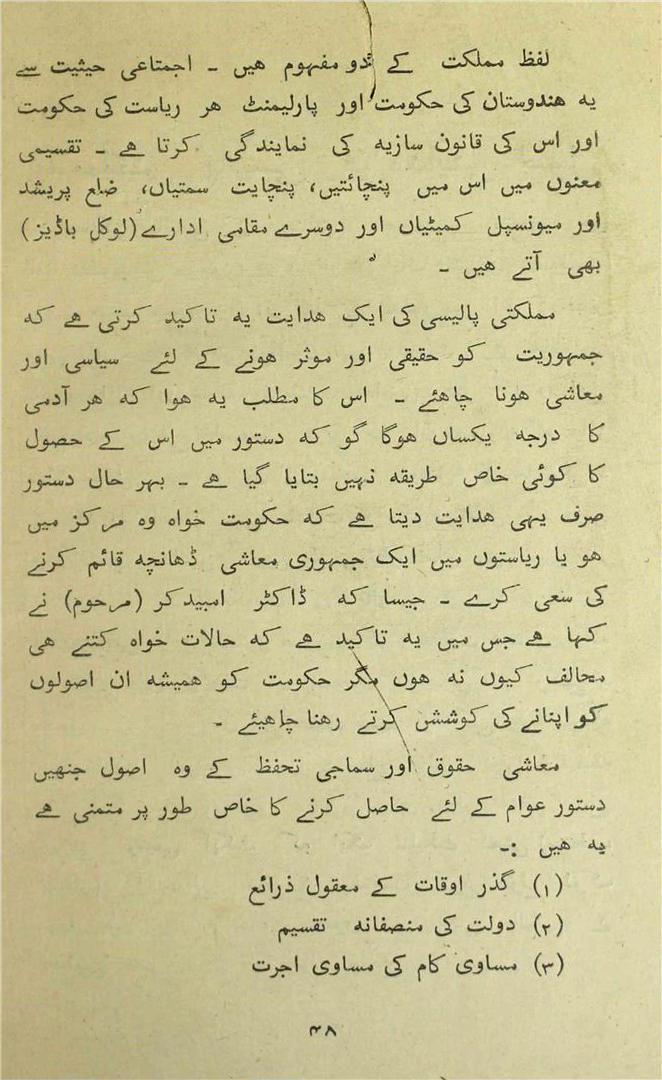 لفظ مملکت کے دو مفہوم ھیں ۔ اجتماعی حیثیت سے
یہ ھندوستان کی حکومت اور پارلیمنٹ ھر ریاست کی حکومت
اور اس کی قانون سازیہ کی نمایندگی کرتا ھے ۔ تقسیمی
معنوں میں اس میں پنچائتیں، پنچایت سمتیاں، ضلع پریشد
اور میونسپل کمیٹیاں اور دوسرے مقامی ادارے (لوکل باڈیز)
بھی آتے ھیں ۔
مملکتی پالیسی کی ایک ھدایت یہ تاکید کرتی ھے کہ
جمہوریت کو حقیقی اور موثر ھونے کے لئے سیاسی اور
معاشی ھونا چاھئے ۔ اس کا مطلب یہ ھوا کہ ھر آدمی
کا درجہ یکساں ھوگا گو کہ دستور میں اس کے حصول
کا کوئی خاص طریقہ نہیں بتایا گیا ھے ۔ بہر حال دستور
صرف یہی ھدایت دیتا ھے کہ حکومت خواہ وہ مرکز میں
ھو یا ریاستوں میں ایک جمہوری معاشی ڈھانچہ قائم کرنے
کی سعی کرے ۔ جیسا کہ ڈاکٹر امبیدکر (مرحوم) نے
کہا ھے جس میں یہ تاکید ھے کہ حالات خواہ کتنے ھی
مخالف کیوں نہ ھوں مگر حکومت کو ھمیشہ ان اصولوں
کو اپنانے کی کوشش کرتے رھنا چاھیئے ۔
معاشی حقوق اور سماجی تحفظ کے وہ اصول جنھیں
دستور عوام کے لئے حاصل کرنے کا خاص طور پر متمنی ھے
یہ ھیں :۔
(۱) گذر اوقات کے معقول ذرائع
(۲) دولت کی منصفانہ تقسیم
(۳) مساوی کام کی مساوی اجرت
۴۸